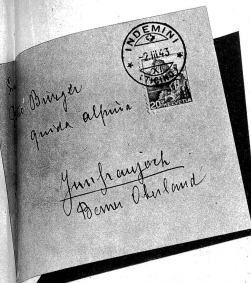 INDEMINI
-2.III.43
(TICINO)
20
Bürger
guida alpina
Jungfraujoch
Berner Oberland